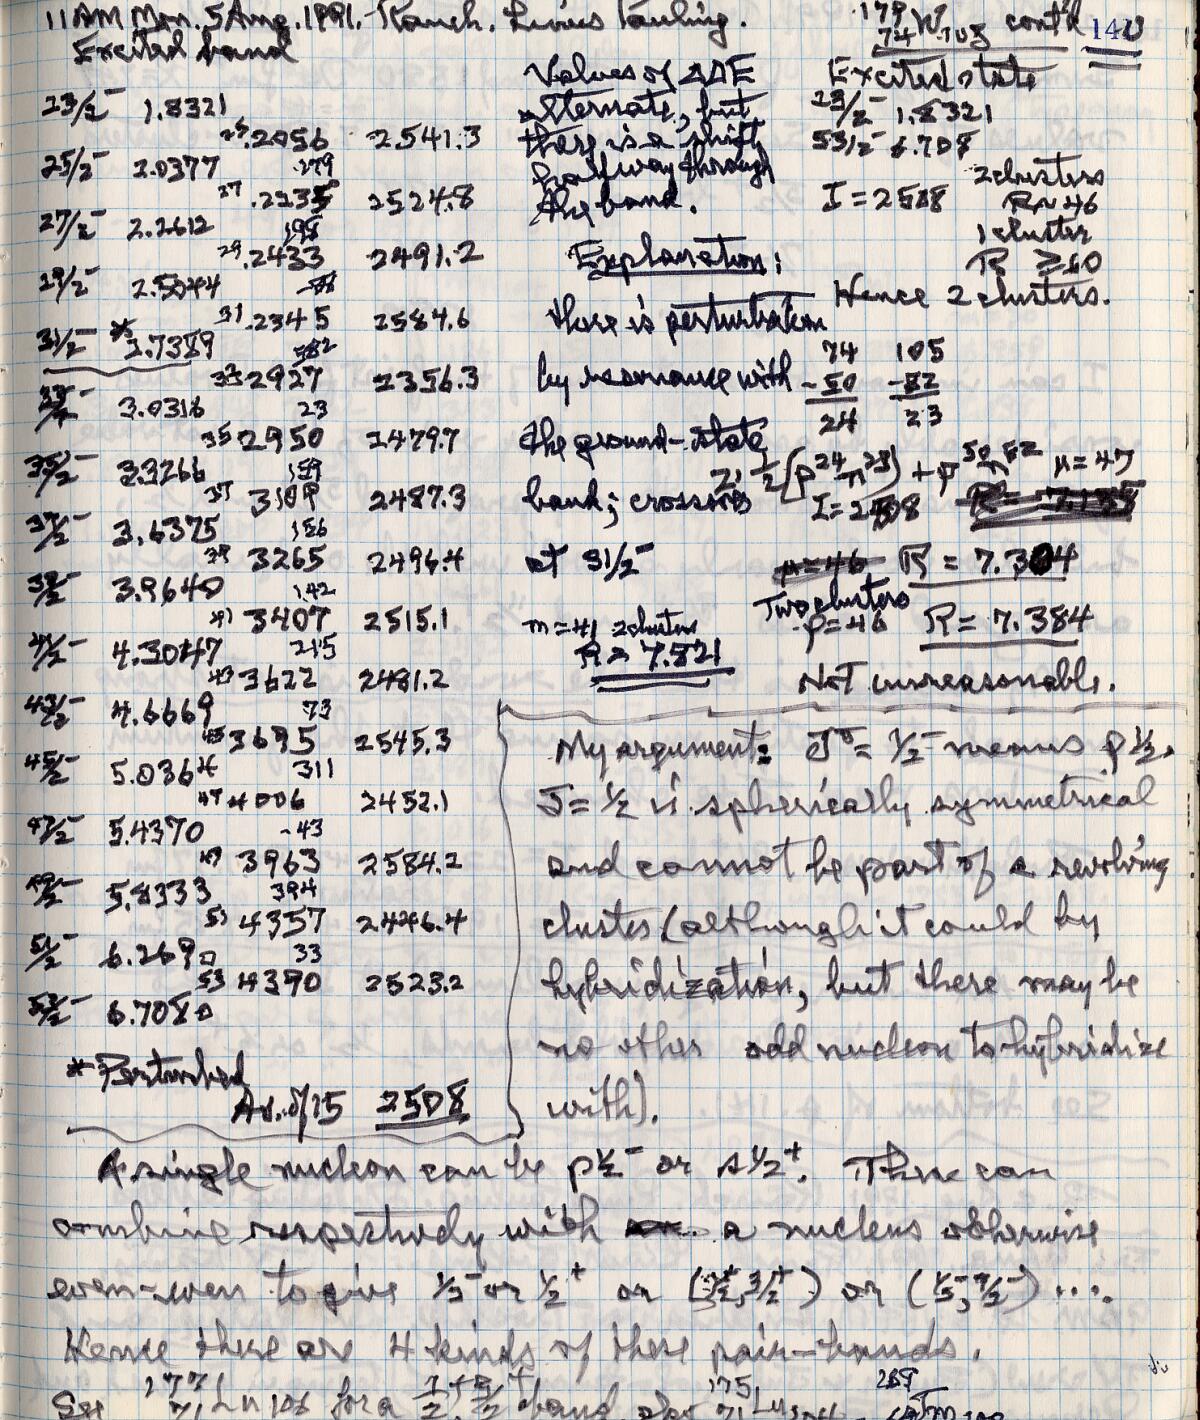 11 AM Mon. 5 Aug. 1991. Ranch. Linus Pauling.
179 74 W 105 cont'd 140
Excited band
23/2- 1.8321
25 .2056 2541.3
25/2- 2.0377 .179
27 .2235 2524.8
27/2- 2.2612 198
29 .2433 2491.2
29/2- 2.5044 -88
31 .2345 2584.6
31/2- * 2.7389 582
33 2927 2356.3
33/2- 3.0316 23
35 2950 2479.7
35/2- 3.3266 159
37 3109 2487.3
37/2- 3.6375 156
39 3265 2496.4
39/2- 3.9640 142
41 3407 2515.1
41/2- 4.3047 215
43 3622 2481.2
43/2- 4.6669 73
45 3695 2545.3
45/2- 5.0364 311
47 4006 2452.1
47/2- 5.4370 -43
49 3963 2584.2
49/2- 5.8333 394
51 4357 2446.4
51/2- 6.2690 33
53 4390 2523.2
53/2- 6.7080
* Perturbed
Av. of 15 2508
Values of ΔΔE
alternate, but
there is a shift
halfway through
the band.
Explanation:
there is perturbation
by resonance with
the ground-state
band; crossing
at 31/2-
n=41 2 clusters
R = 7.821
Excited state
23/2- 1.8321
53/2- 6.708
2 clusters
I = 2508 R~46
1 cluster
R ≥60
Hence 2 clusters.
74 105
-50 -82
24 23
2, 1/2(p24 n23) + p50 n82 n=47
I=2508
R = 7.304
Two clusters
p=46 R = 7.384
Not unreasonable.
My argument: Jπ = 1/2- means p 1/2.
J = 1/2 is spherically symmetrical
and cannot be part of a revolving
cluster (although it could by
hybridization, but there may be
no other odd nucleon to hybridize
with).
A single nucleon can be p1/2- or s1/2+. These can
combine respectively with a nucleus otherwise
even-even to give 1/2- or 1/2+ or
Hence there are 4 kinds of these pair-bands.
See 177 71 Lu 106 for a 7/2+ band, also 175 71 Lu